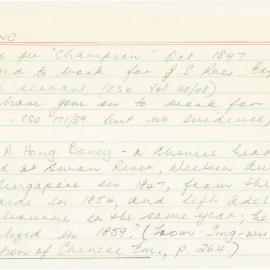 NG
per "Champion" Oct 1847
to work for J.S. Roe. Esq
servant (CSO Vol 160/48)
have gone on to work for
- CSO 171/59 but no evidence)
A Hong Boney - a Chinese
at Swan River, Western Au
Singapore in 1847, from the
aide in 1854, and left Adel
bourne in the same year; he
lized in 1859? (From: Jing-
tion of Chinese Em., p 264)